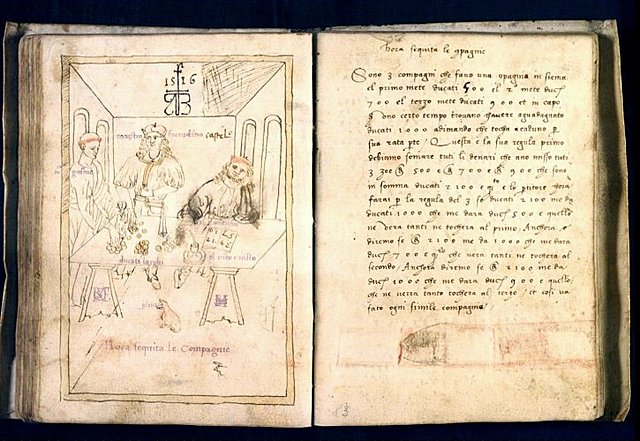 1516
ducati largi
Hora sequita le Compagnie
Hora sequita le 9pagnie
Sono 3 compagni che fano una 9pagnia insiema
el primo mete ducati 500 el 2° mete duc
700 el terzo mete ducati 900 et in capo
uno certo tempo trovano havere guadagnato
ducati 1000 adimando che tocha a caduno p
sua rata pte Questa e la sua regula primo
debiamo somare tuti li denari che ano misso tuti
3 zoe 500 e 700 e 900 che sono
in somma ducati 2100 e
farai p la regula del 3 se ducati 2100 me da
ducati 1000 che me dara duc 500 e quello
ne vera tanti ne tochera al primo Anchora
diremo se 2100 me da 1000 che me dara
duc 700 e che vera tanti ne tochera al
secondo Anchora diremo se 2100 me da
duc 1000 che me dara duc 900 e quello
che ne verra tanto tochera al terzo et cosi va
fato ogni simile compagnia
83